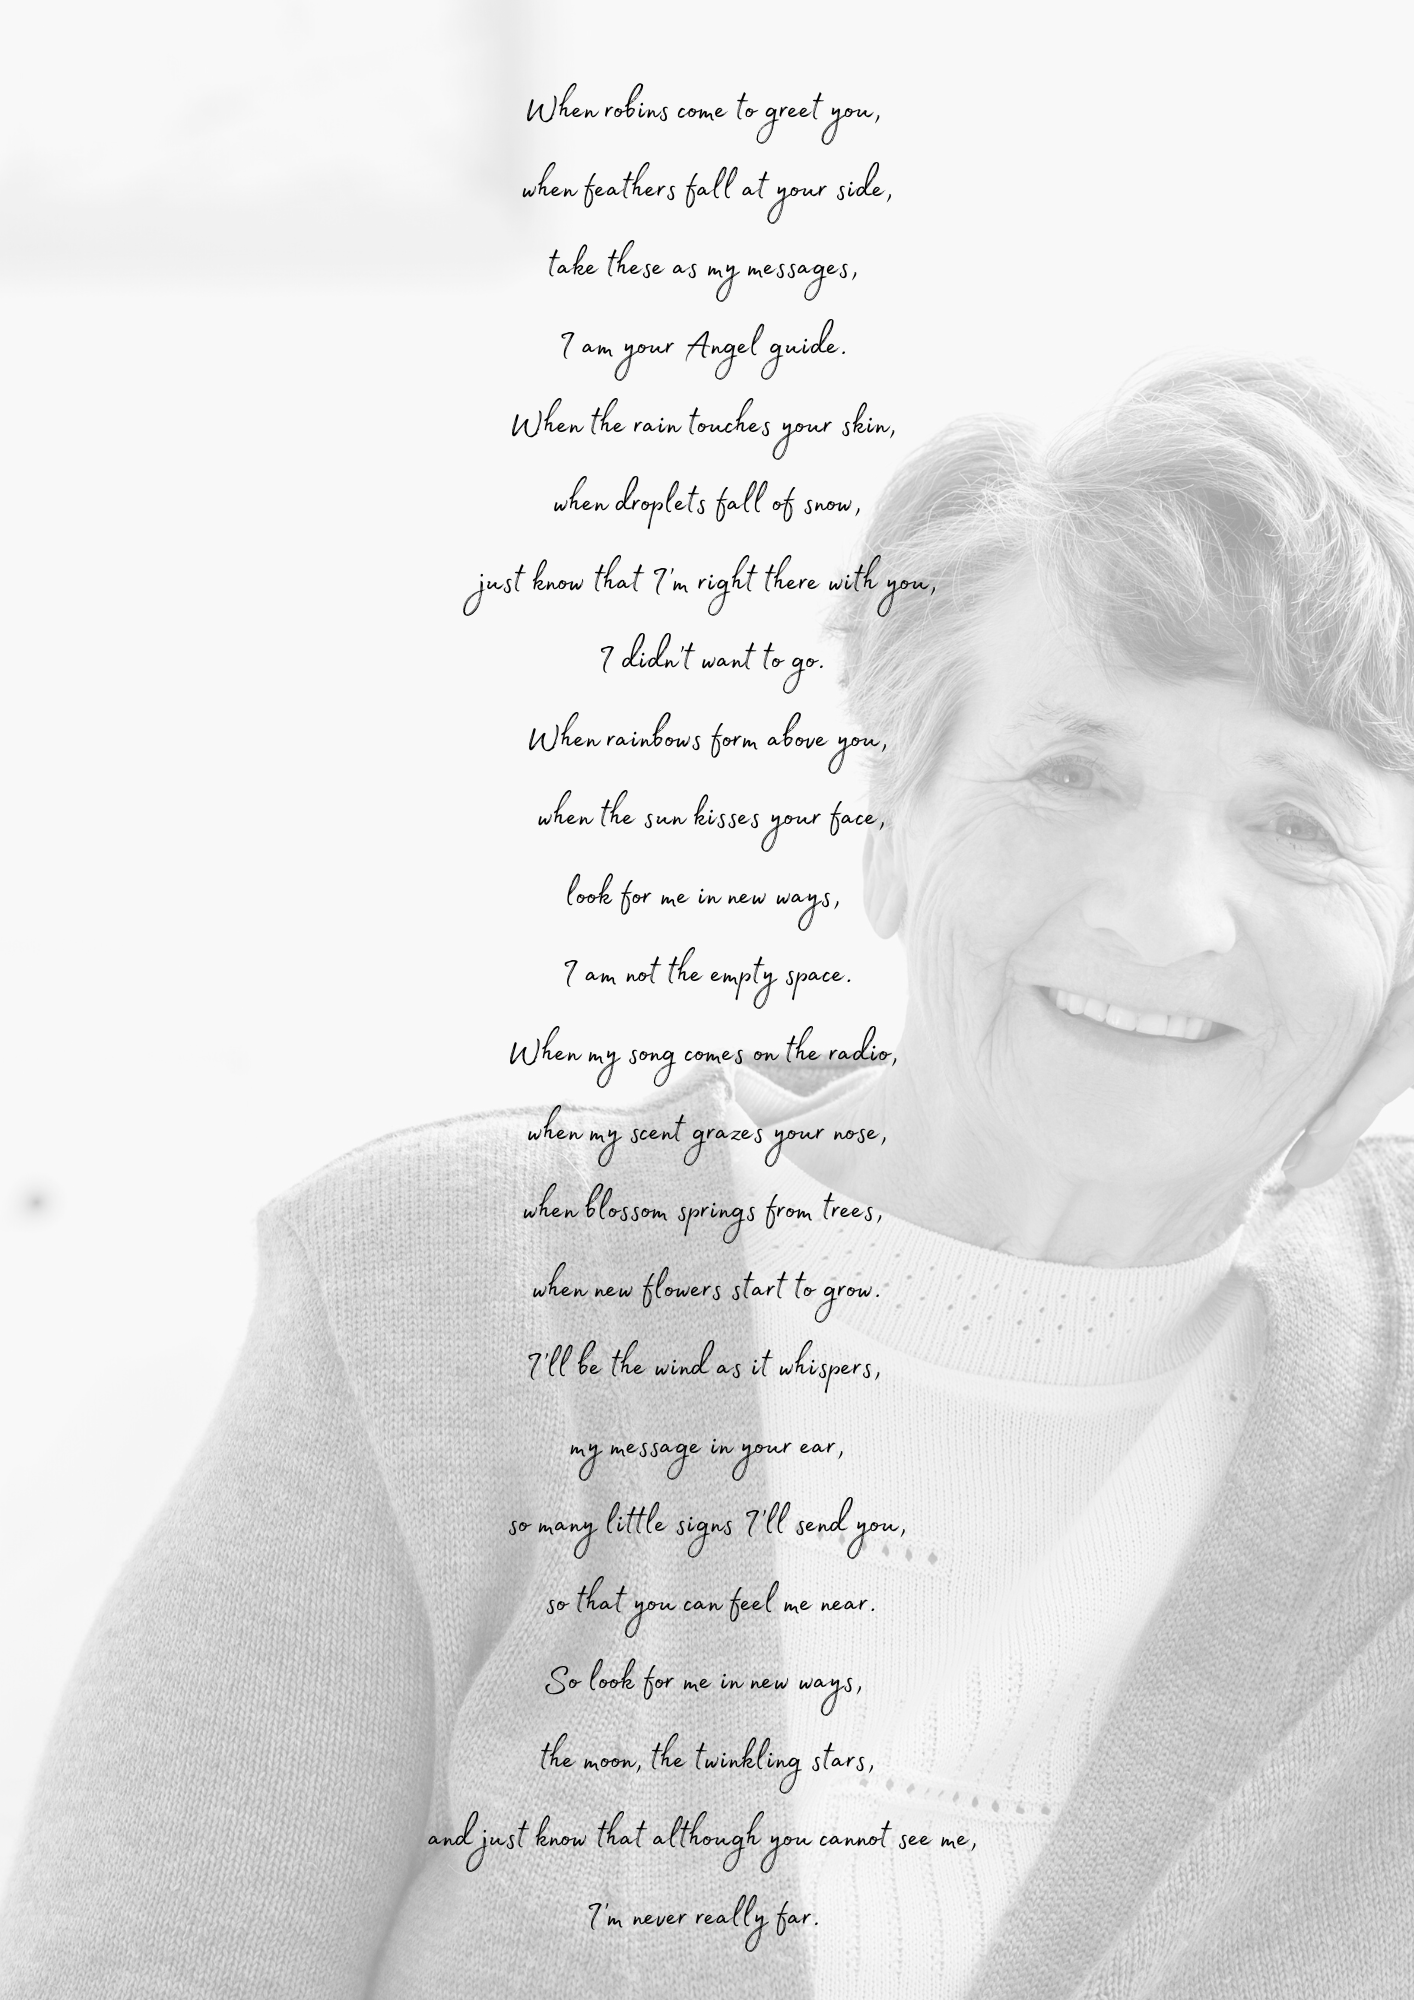 When robins come to greet you,
when feathers fall at your side,
take these as my messages,
I am your Angel guide.
When the rain touches your skin,
when droplets fall of snow,
just know that I'm right there with you,
I didn't want to go.
When rainbows form above you,
when the sun kisses your face,
look for me in new ways,
I am not the empty space.
When my song comes on the radio,
when my scent grazes your nose,
when blossom springs from trees,
when new flowers start to grow.
I'll be the wind as it whispers,
my message in your ear,
so many little signs I'll send you,
so that you can feel me near.
So look for me in new ways,
the moon, the twinkling stars,
and just know that although you cannot see me,
I'm never really far.